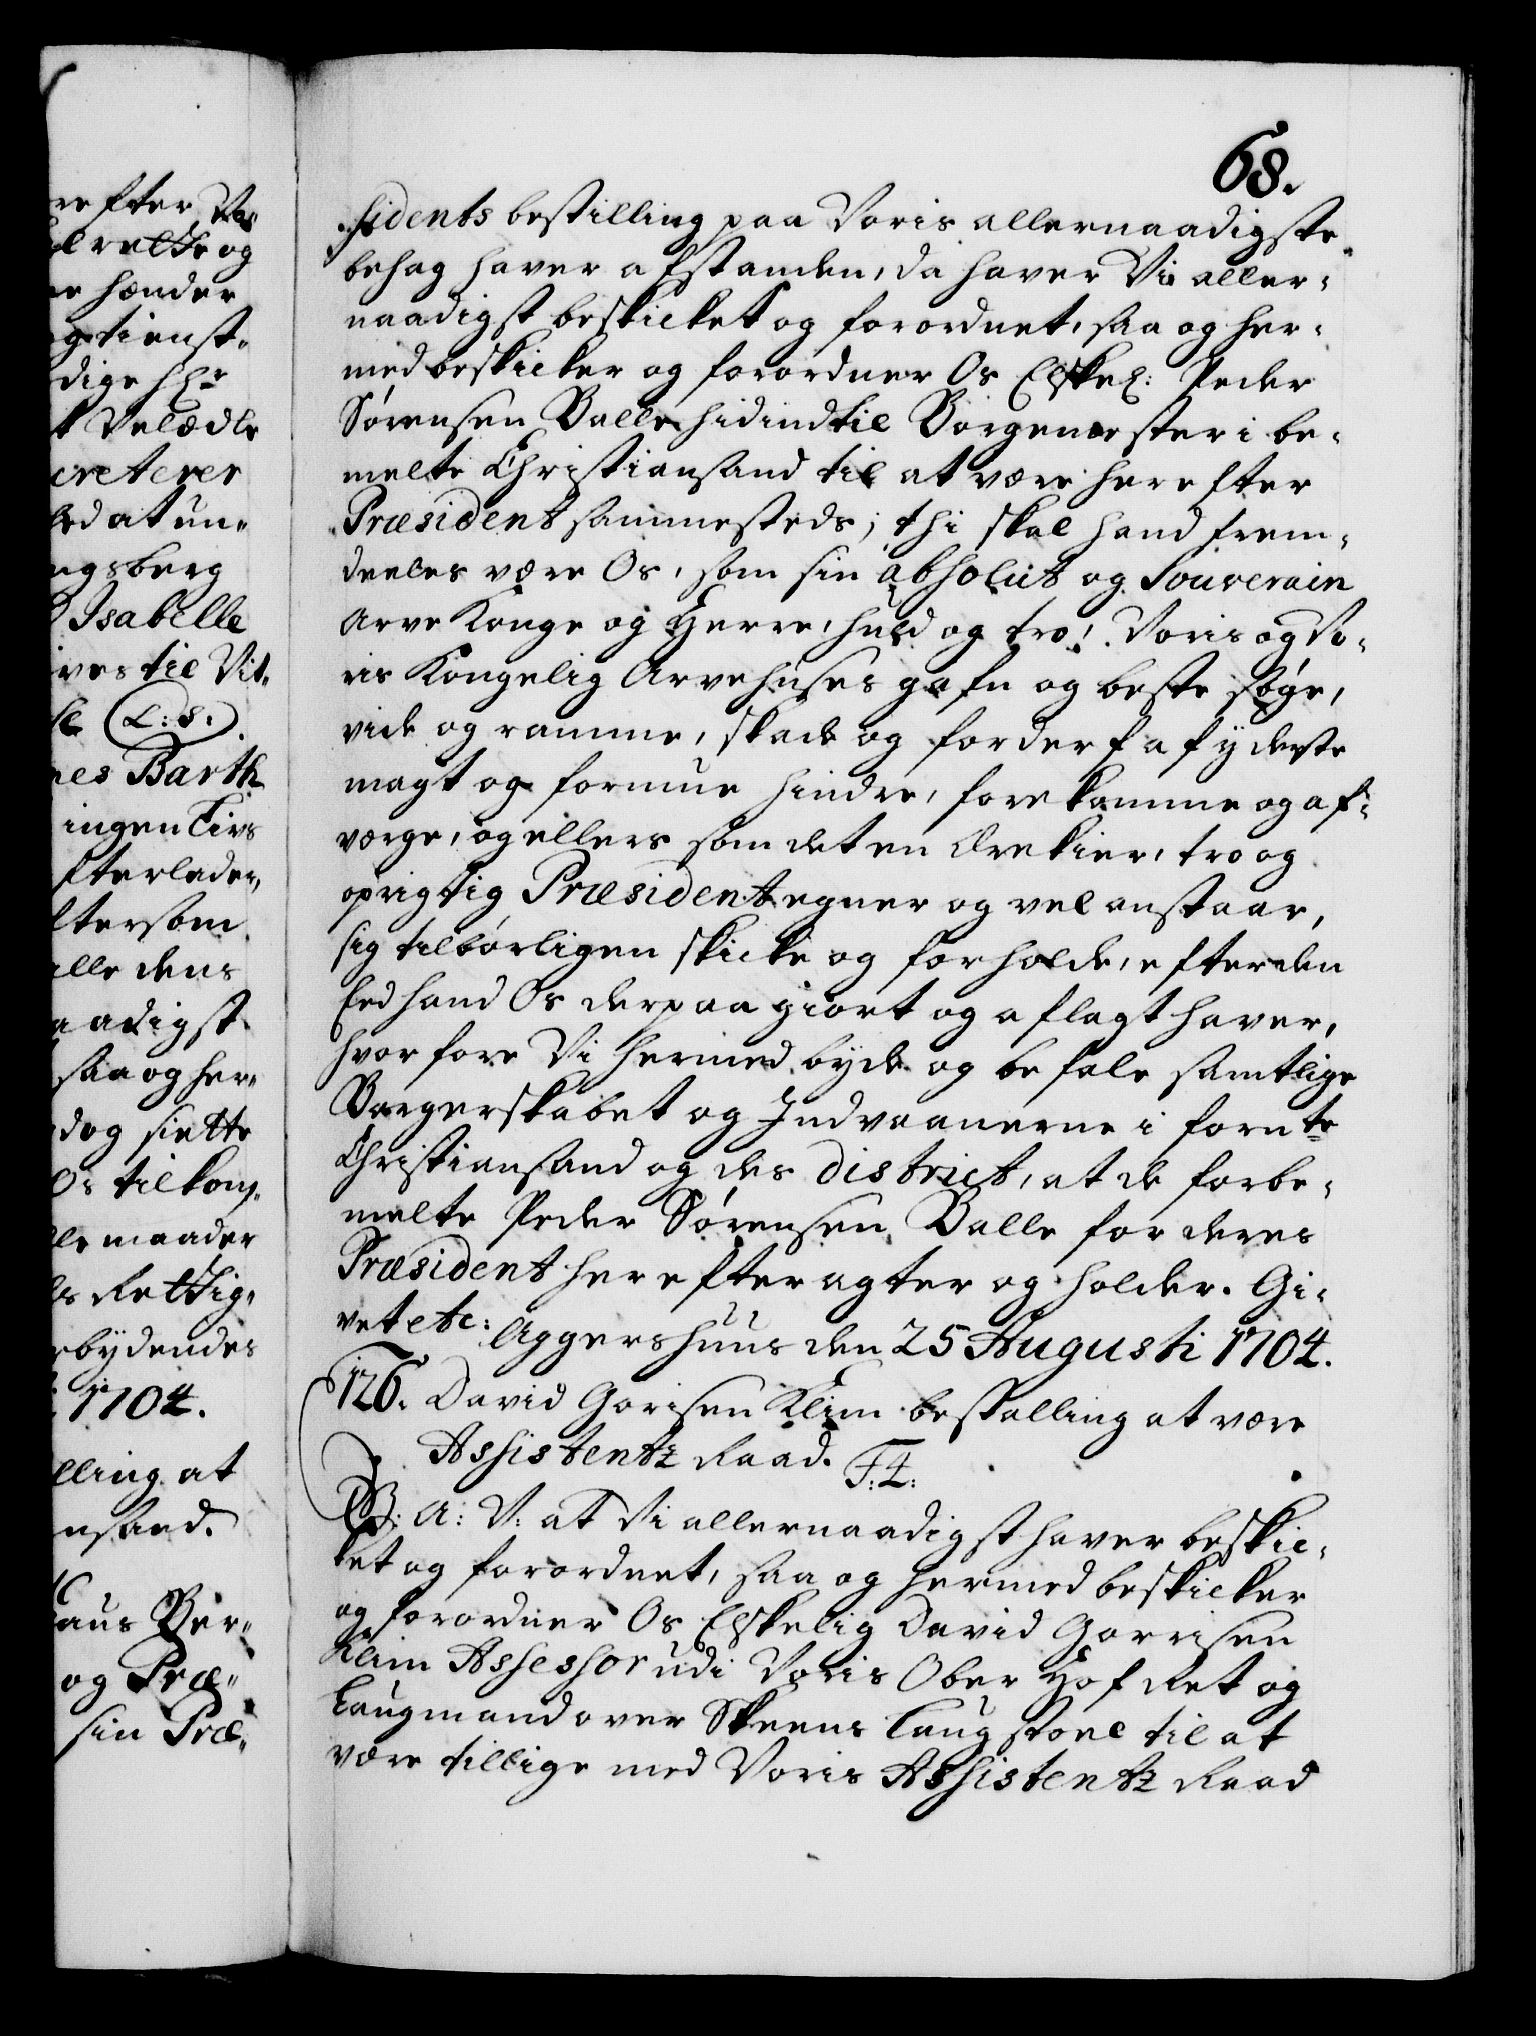 68.
sidents bestilling paa Voris allernaadigste
behag haver afstanden, da haver Vi aller-
naadigst beskicket og forordnet, saa og her-
med beskicker og forordner Os Elskel: Peder
Sørensen Balle hidindtil Borgemester i be-
melte Christiansand til at være herefter
Præsident sammesteds; thi skal hand frem-
deeles være Os, som sin absolut og Souverain
Arve Konge og Herre, huld og tro! Voris og Vo-
ris Kongelig Arvehuses gafn og beste søge,
vide og ramme, skade og forderf af yderste
magt og formue hindre, forekomme og af-
værge, og ellers som det en Ærekier, tro og
oprigtig Præsident egner og vel anstaar,
sig tilbørligen skicke og forholde, efter den
Eed hand Os derpaa giort og aflagt haver,
hvorfore Vi hermed byde og befale samtlige
Borgerskabet og Indvaanerne i fornte
Christiansand og des district, at de forbe-
melte Peder Sørensen Balle for deres
Præsident herefter agter og holder. Gi-
vet etc: Aggershuus den 25 Augusti 1704.
126. David Gorisen Klim bestalling at være
Assistentz Raad. F: 4:
G: A: V: at Vi allernaadigst haver beskic-
ket og forordnet, saa og hermed beskicker
og forordner Os Elskelig David Gorrisen
Klim Assessor udi Voris Ober Hof Ret og
Laugmand over Skeens Laugstoel til at
være tillige med Voris Assistentz Raad
refter Vo-
rette og
hænder
tienst-
dige
Velædle
creterer
at un-
ngsberg
Isabelle
ves til Vit-
L: S:
nes Barth
ingen Livs
fterleder,
ltersom
alle dens
aadigst
saa og her-
dog siette
Os tilkom-
lle maader
Rettig-
rbydendes
1704.
lling at
nsand.
aus Ver-
og Præ-
sin Præ-